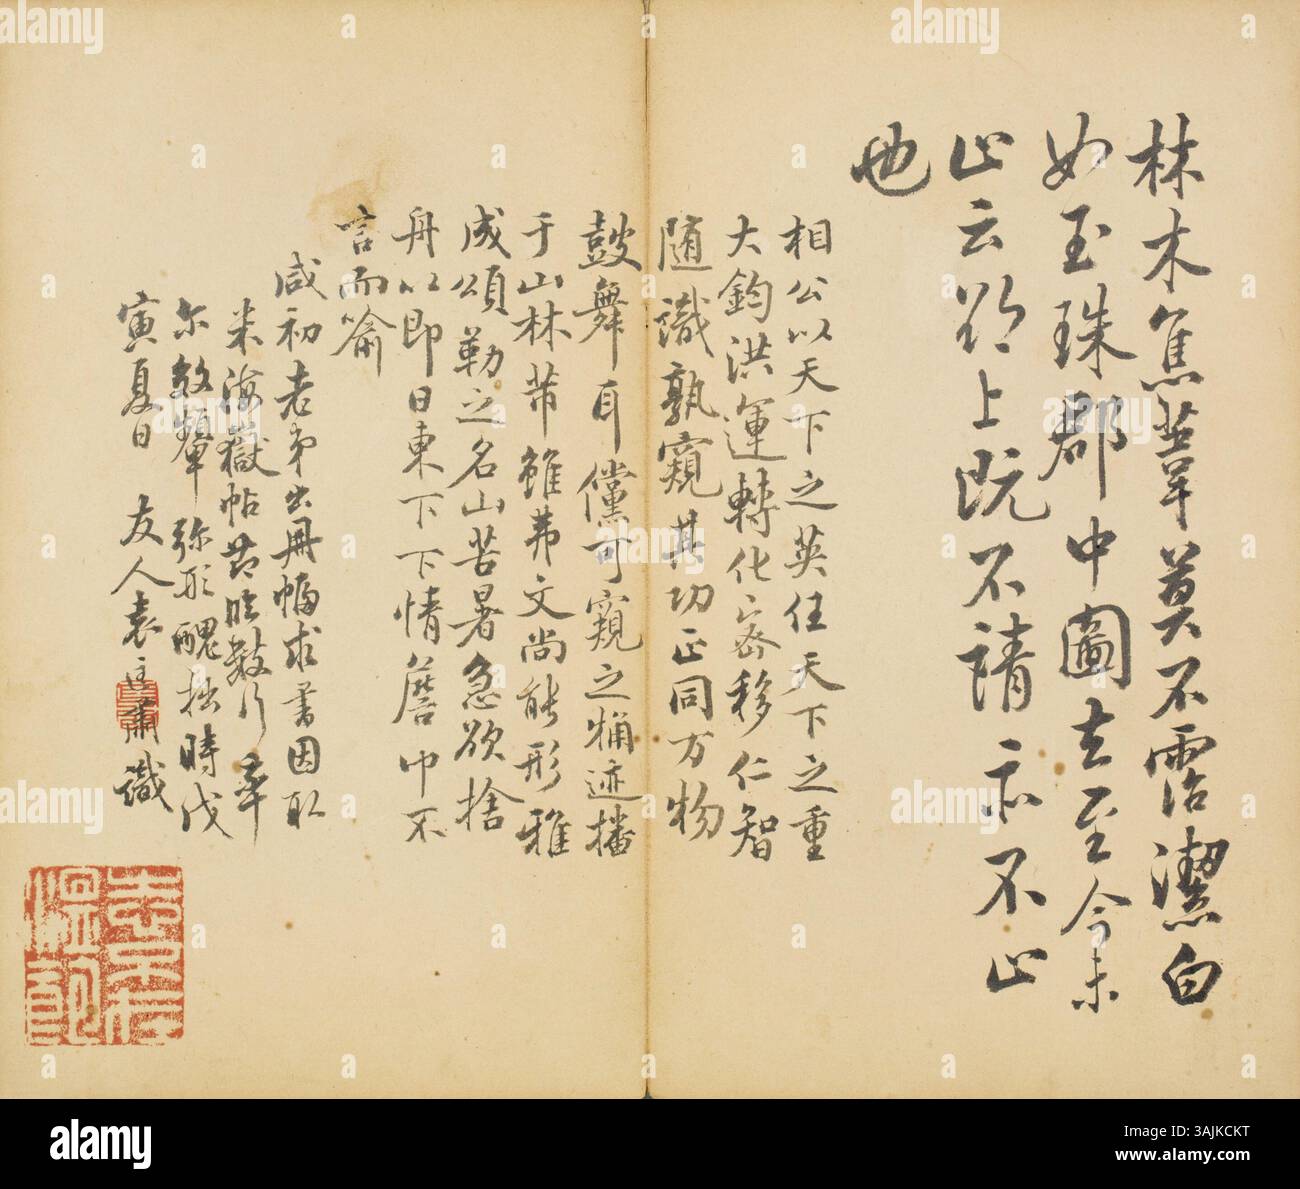 林木焦葦莫不霑潔白
如玉珠郡中圖去至今未
止云部上既不請亦不止
也
相公以天下之英任天下之重
大鈞洪運轉化密移仁智
隨識孰窺其功正同万物
鼓舞耳儻可窺之粗迹播
于山林芾雖弗文尚能形雅
成頌勒之名山苦暑急欲捨
舟以即日東下下情詹仰不
言而喻
咸初老弟出冊幅求書因取
米海嶽帖節臨數行率
尔效顰弥形醜拙時戊
寅夏日 友人袁匡肅識
alamy
Image ID: 3AJKCKT
www.alamy.com